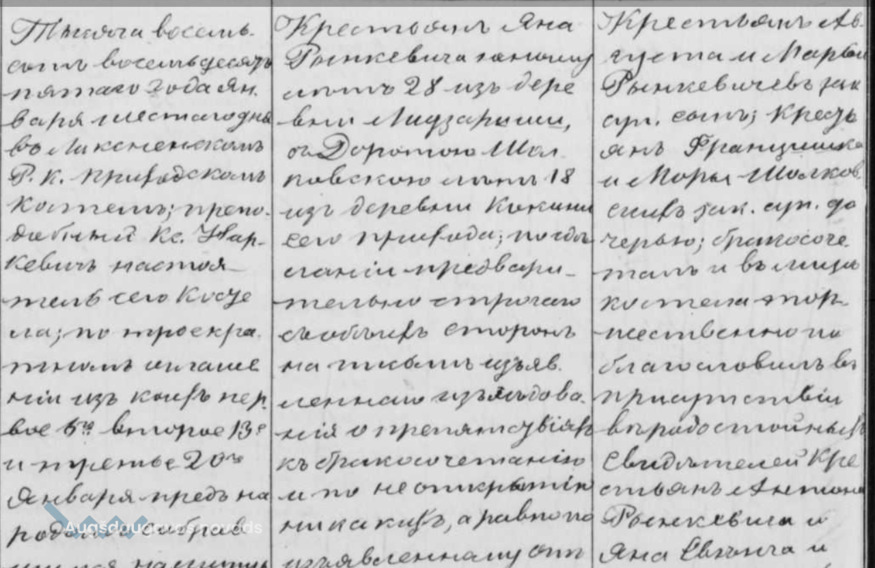 Тысяча восемь-
сотъ восемьдесятъ
пятаго года Ян-
варя шестаго дня
въ Ликсненскомъ
Р. К. приходскомъ
костелѣ; препо-
добный Кс. Нар-
кевичъ настоя-
тель сего Косте
ла; по троекра
тномъ оглаше
ніи изъ коихъ пер
вое 6го второе 13го
и третье 20го
Января предъ на
родомъ собрав
Крестьянъ Яна
Рынкевича юношу
лѣтъ 28 изъ дере
вни
съ Доротою Шол
ковскою лѣтъ 18
изъ деревни Кокини
сего прихода; по сдѣ
ланіи предвари-
тельно строгаго
съ обѣихъ сторонъ
на письмѣ изъяв
леннаго изслѣдова-
нія о препятствіяхъ
къ бракосочетанію
и по неоткрытію
никакихъ, а равно по
изъявленному отъ
Крестьянъ Ав-
густа и Марьи
Рынкевичевъ зак
сут. сынъ; Кресть
янъ Францишка
и Марьи Шолков
скихъ зак. суп. до
черью; бракосоче
талъ и въ лицѣ
костела тор
жественно по
благословилъ въ
присутствіи
вѣродостойныхъ
Свидѣтелей Кре
стьянъ Антона
Рынкевича и
Яна и
Augsdaugavas novads